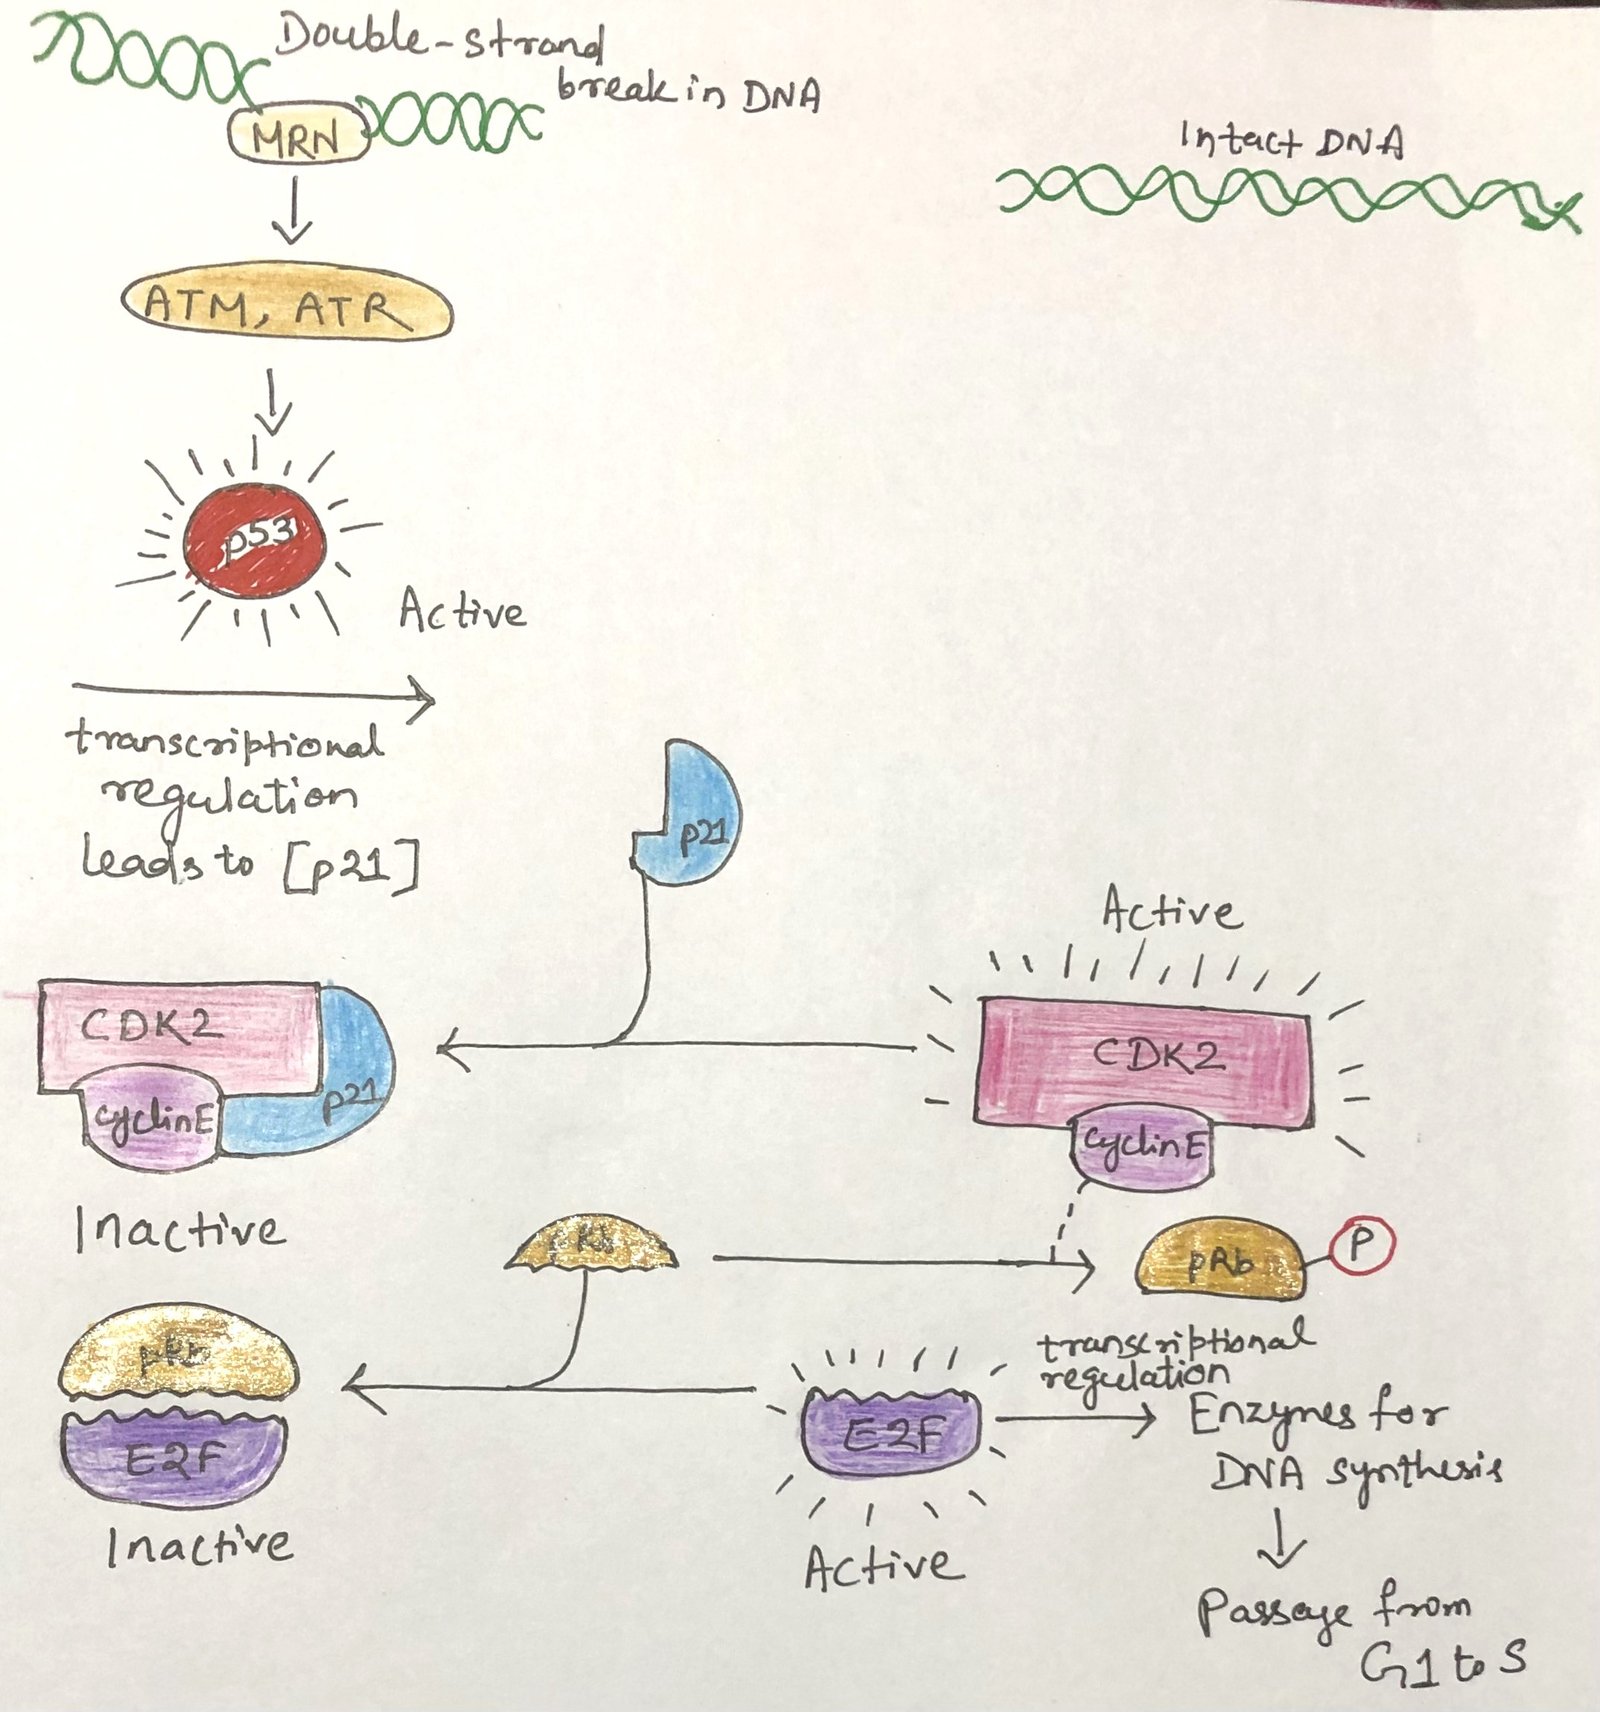 Double-strand
break in DNA
MRN
Intact DNA
ATM, ATR
p53
Active
transcriptional
regulation
leads to [p21]
p21
Active
CDK2
p21
cyclinE
CDK2
cyclinE
Inactive
pRb
P
E2F
Inactive
E2F
Active
transcriptional
regulation
Enzymes for
DNA synthesis
Passage from
G1 to S